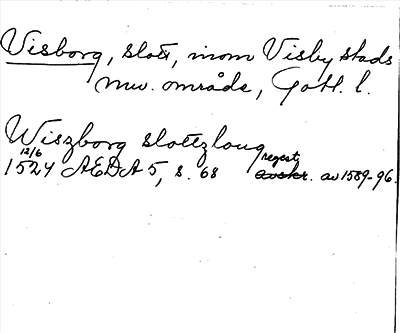 Visborg, slott, inom Visby stads
nuv. område, Gotl. l.
Wiszborg slottzlaug
12/6 regest
1524 AEDA 5, s. 68 avskr. av 1589-96.